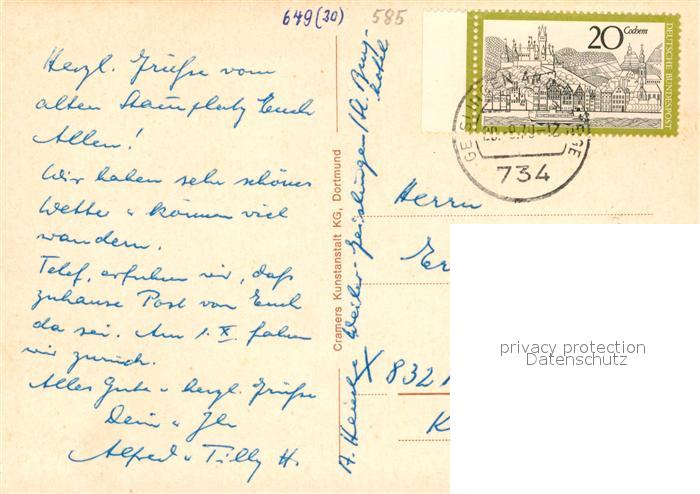 649(30) 585
Herzl. Grüße vom
alten Stammplatz Euch
Allen!
Wir haben sehr schönes
Wetter u können viel
wandern.
Telef. erfuhren wir, daß
zuhause Post von Euch
da sei. Am 1. X. fahren
wir zurück.
Alles Gute u herzl. Grüße
Dein u Ihr
Alfred u Tilly H.
Cramers Kunstanstalt KG, Dortmund
Weiler-Geislingen/St.
20 Cochem
DEUTSCHE BUNDESPOST
GEISLINGEN AN DER STEIGE
734
Herrn
Er
X 832
K
privacy protection
Datenschutz